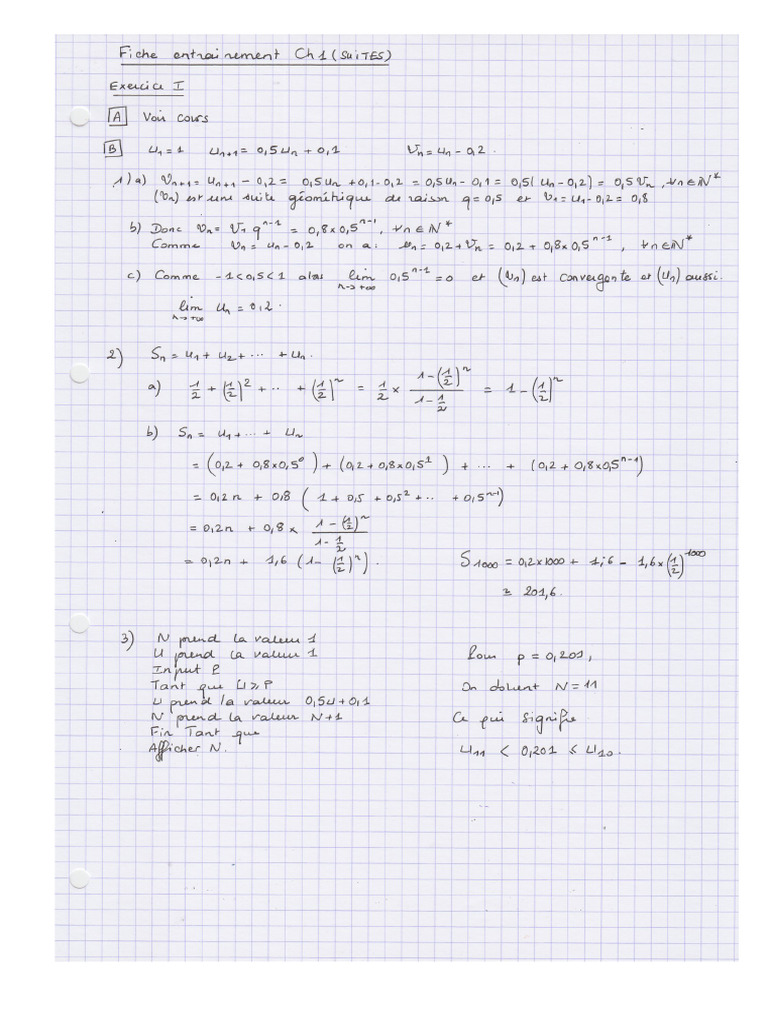 Fiche entrainement Ch1 (SUITES)
Exercice I
A Voir cours
B u₁ = 1 uₙ₊₁ = 0,5uₙ + 0,1 Vₙ = uₙ - 0,2.
1) a) Vₙ₊₁ = uₙ₊₁ - 0,2 = 0,5uₙ + 0,1 - 0,2 = 0,5uₙ - 0,1 = 0,5(uₙ - 0,2) = 0,5Vₙ, ∀n∈ℕ*
(Vₙ) est une suite géométrique de raison q = 0,5 et V₁ = u₁ - 0,2 = 0,8
b) Donc Vₙ = V₁ qⁿ⁻¹ = 0,8 × 0,5ⁿ⁻¹, ∀n∈ℕ*
Comme Vₙ = uₙ - 0,2 on a : uₙ = 0,2 + Vₙ = 0,2 + 0,8 × 0,5ⁿ⁻¹, ∀n∈ℕ*
c) Comme -1 < 0,5 < 1 alors lim n→+∞ 0,5ⁿ⁻¹ = 0 et (Vₙ) est convergente et (uₙ) aussi.
lim n→+∞ uₙ = 0,2.
2) Sₙ = u₁ + u₂ + ... + uₙ.
a) 1/2 + (1/2)² + ... + (1/2)ⁿ = 1/2 × (1 - (1/2)ⁿ)/(1 - 1/2) = 1 - (1/2)ⁿ
b) Sₙ = u₁ + ... + uₙ
= (0,2 + 0,8×0,5⁰) + (0,2 + 0,8×0,5¹) + ... + (0,2 + 0,8×0,5ⁿ⁻¹)
= 0,2n + 0,8 (1 + 0,5 + 0,5² + ... + 0,5ⁿ⁻¹)
= 0,2n + 0,8 × (1 - (1/2)ⁿ)/(1 - 1/2)
= 0,2n + 1,6 (1 - (1/2)ⁿ).
S₁₀₀₀ = 0,2×1000 + 1,6 - 1,6×(1/2)¹⁰⁰⁰
≈ 201,6.
3) N prend la valeur 1
U prend la valeur 1
Input P
Tant que U ≥ P
U prend la valeur 0,5U + 0,1
N prend la valeur N+1
Fin Tant que
Afficher N.
Pour p = 0,201,
On obtient N = 11
Ce qui signifie
u₁₁ < 0,201 ≤ u₁₀.